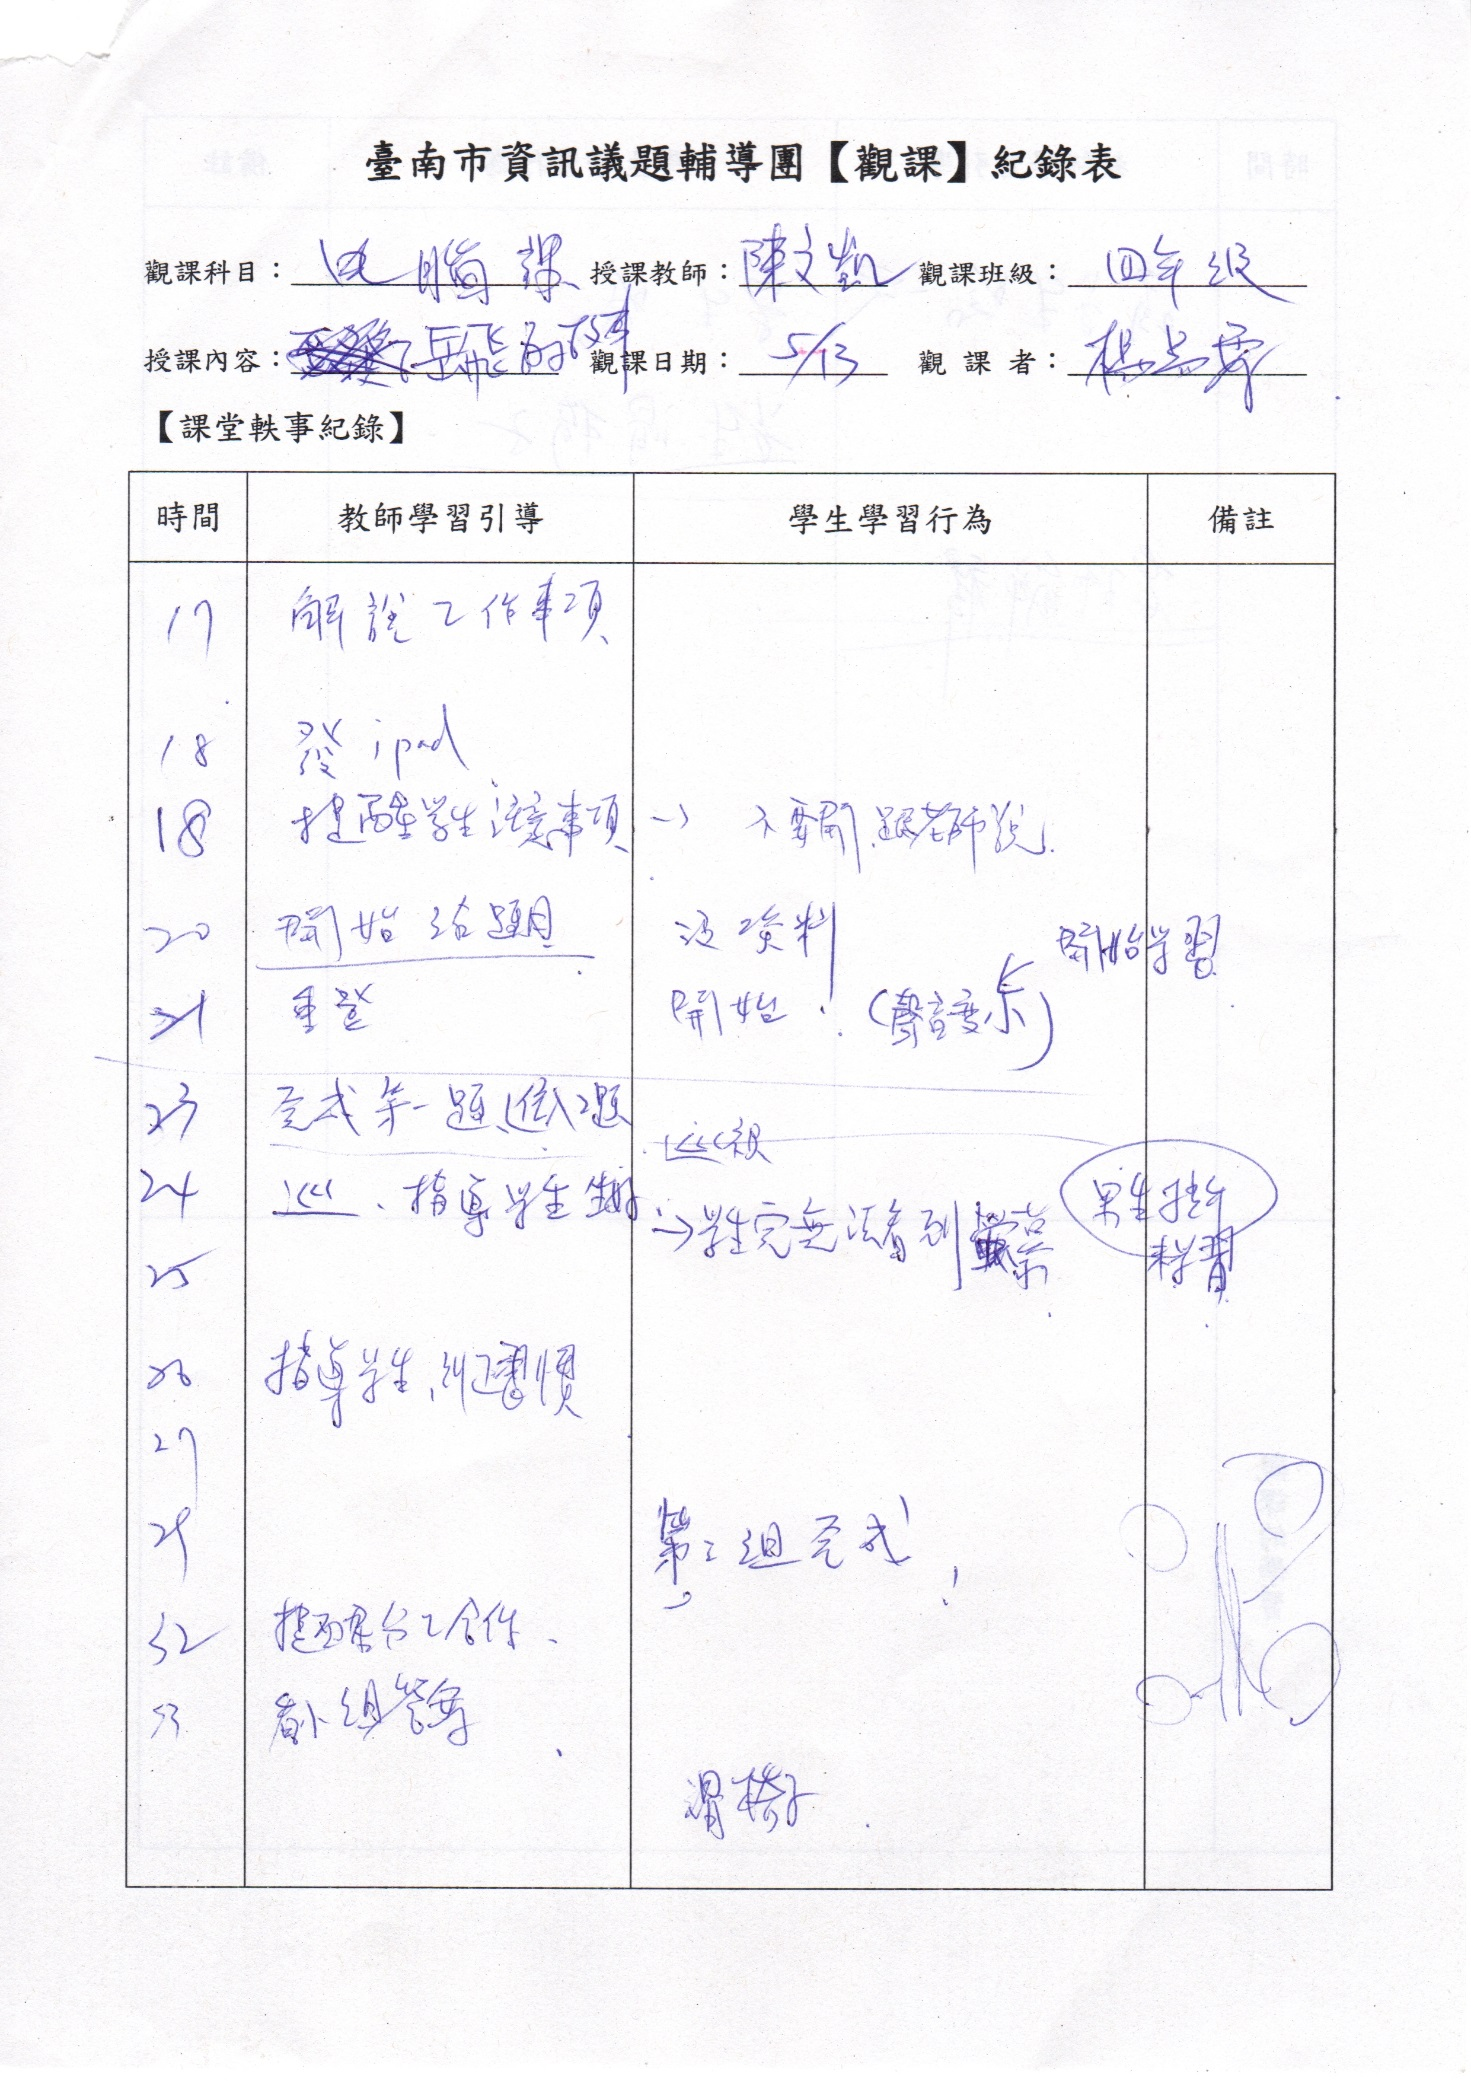 臺南市資訊議題輔導團【觀課】紀錄表
觀課科目：電腦課 授課教師：陳文凱 觀課班級：四年級
授課內容：岳飛的故事 觀課日期：5/13 觀課者：楊
【課堂軼事紀錄】
時間 教師學習引導 學生學習行為 備註
17 解說工作事項
18 發 ipad
18 提醒學生注意事項 → 不要開 跟老師說
20 開始給題目 沒資料 開始學習
21 重登 開始 (聲音變小)
23 完成第一題,進入2題 巡視
24 巡、指導學生 →學生完無法看到螢幕 男生
25 學習
26 指導學生,糾正習慣
27
29 第二組完成!
32 提醒分工合作、
33 看小組答案
滑椅子